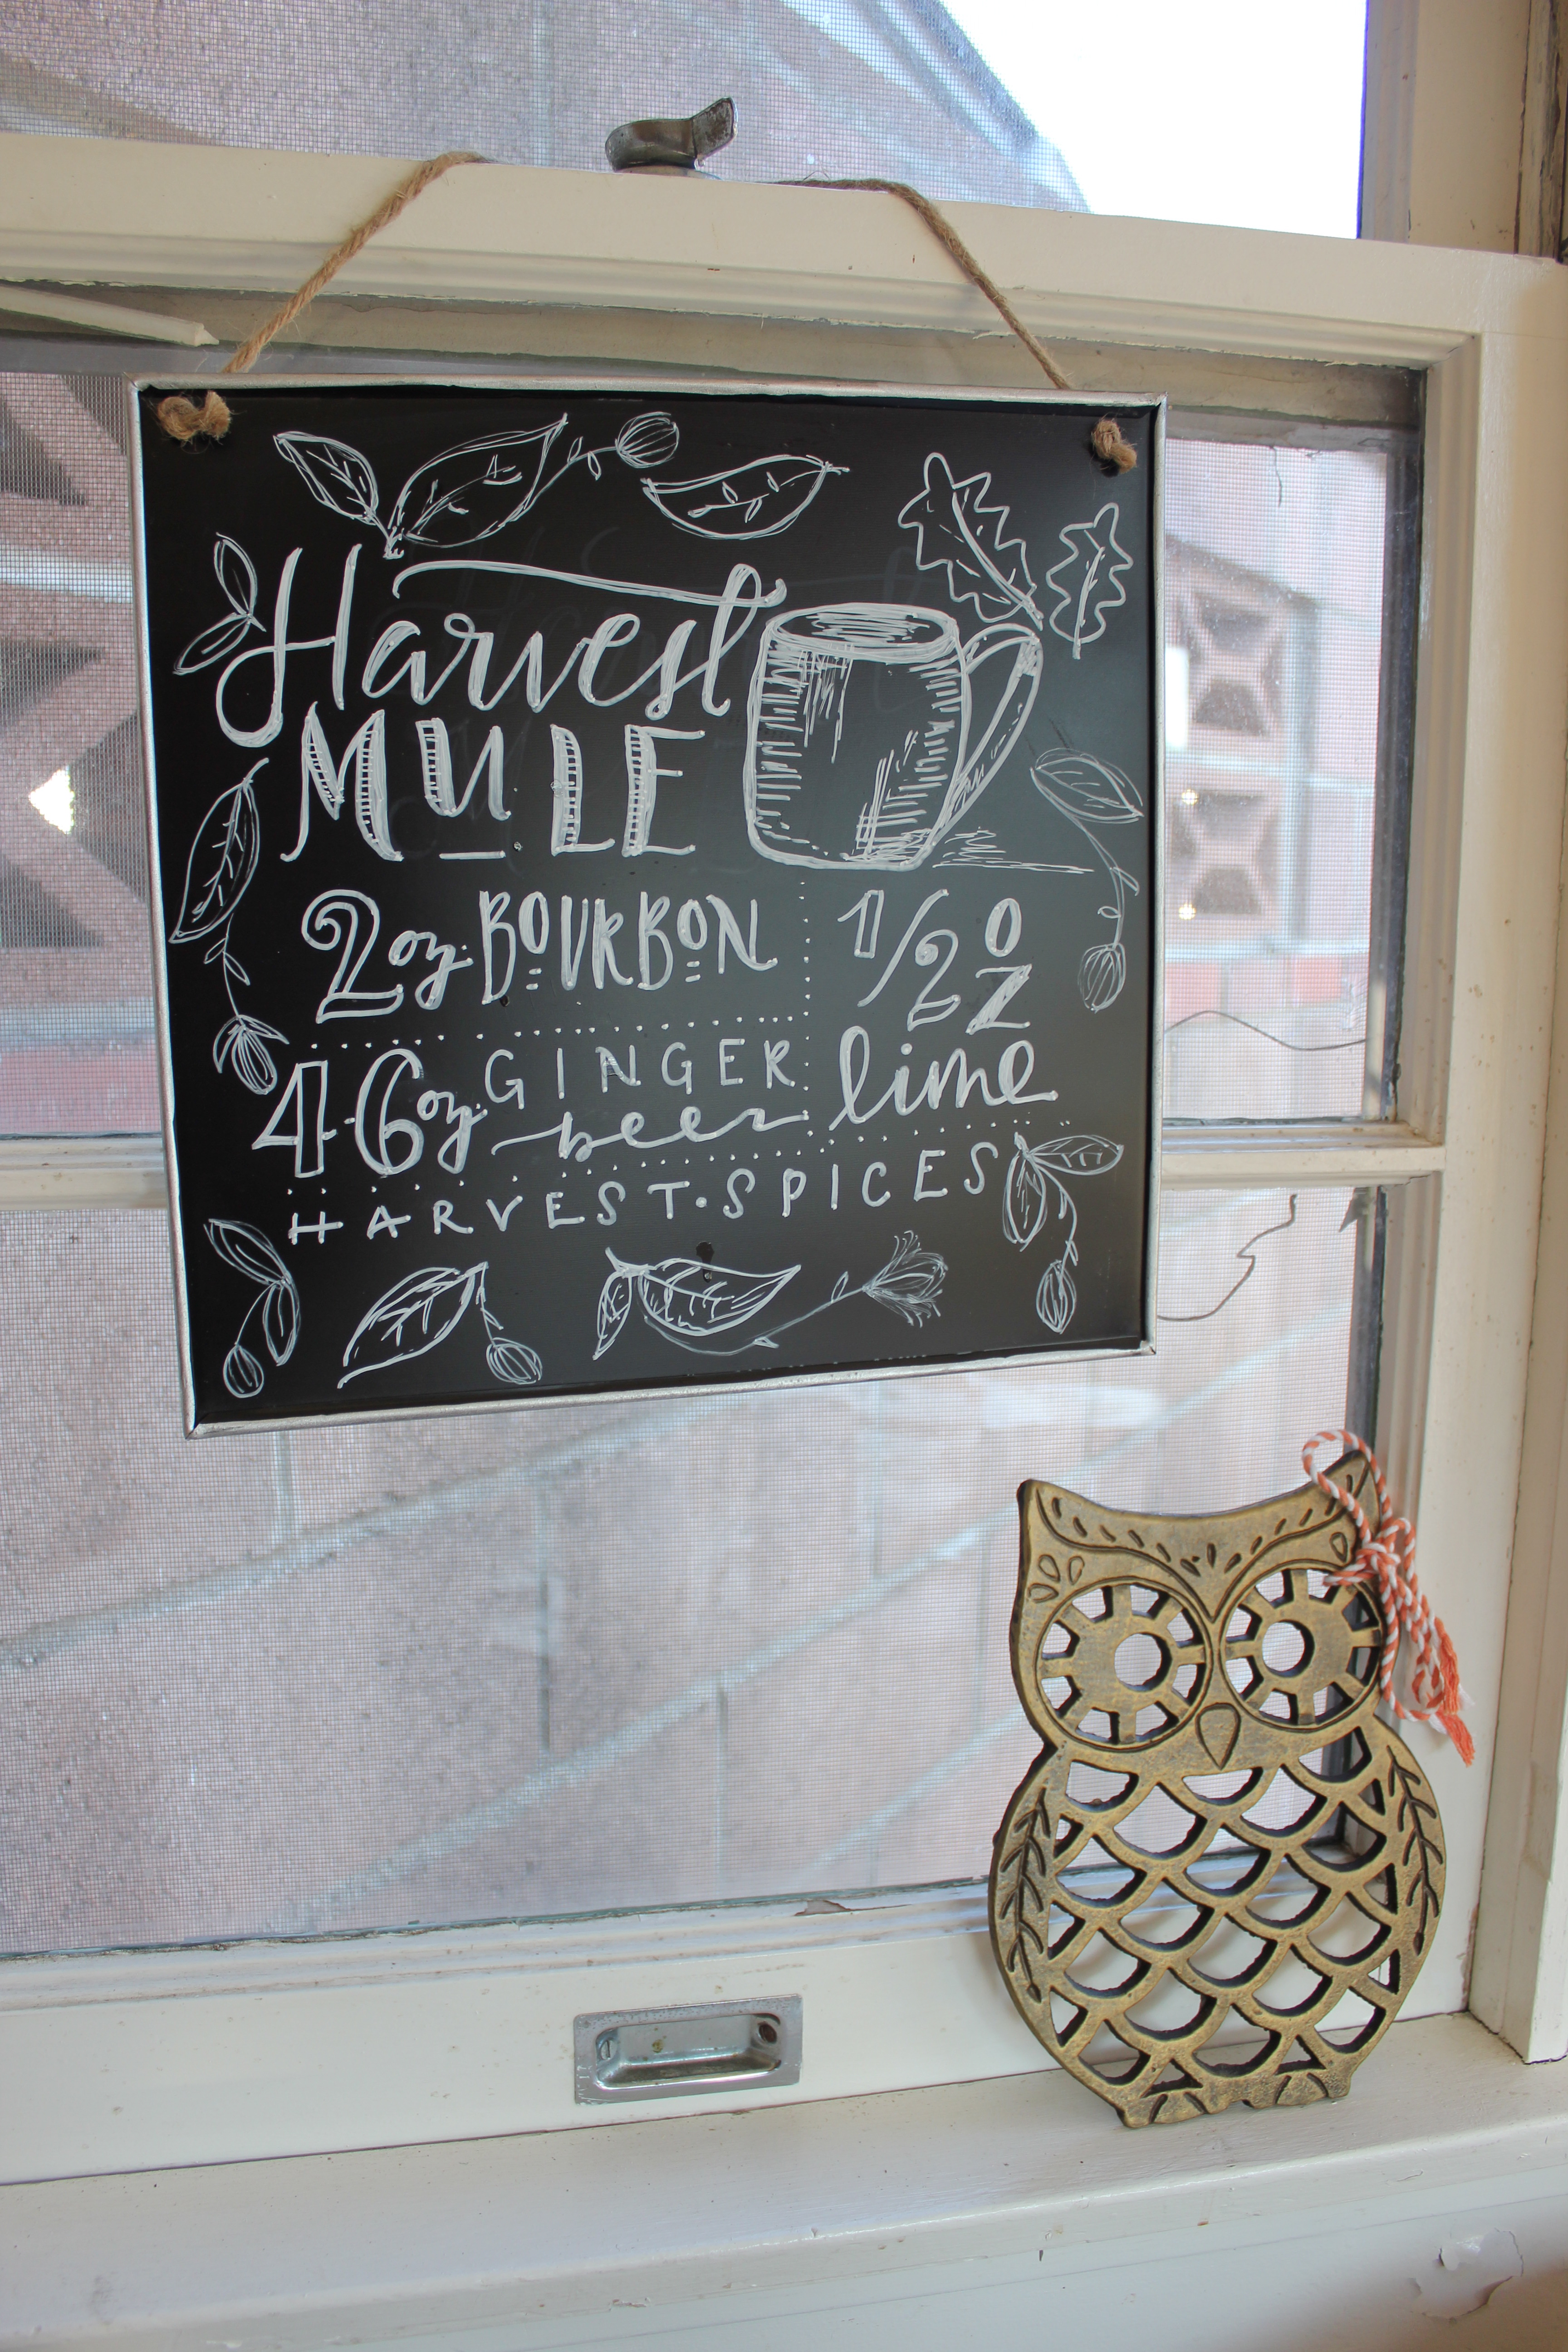 Harvest
MULE
2oz. BOURBON
1/2 OZ
lime
4-6oz. GINGER
beer
HARVEST·SPICES